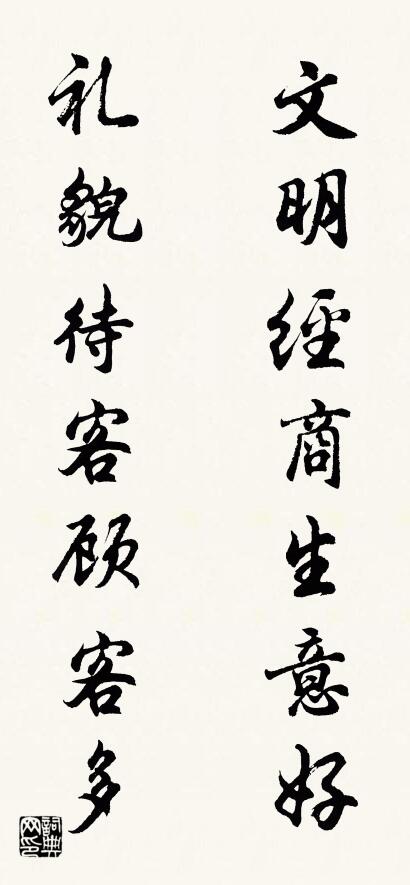 文明經商生意好
礼貌待客顾客多
詞典网印